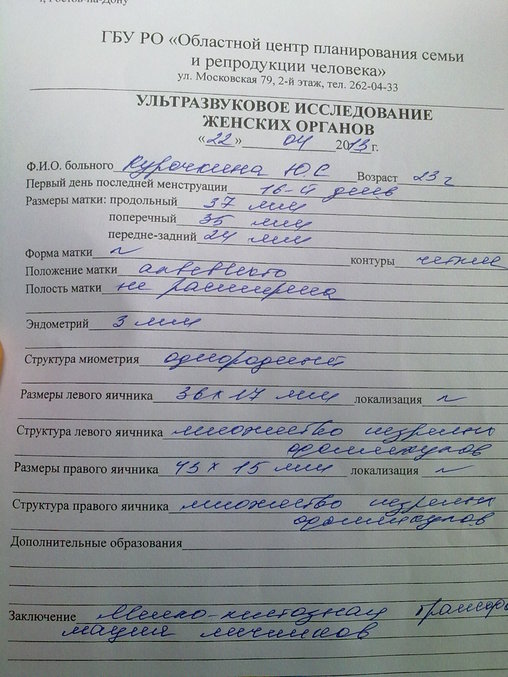 г. Ростов-на-Дону
ГБУ РО «Областной центр планирования семьи
и репродукции человека»
ул. Московская 79, 2-й этаж, тел. 262-04-33
УЛЬТРАЗВУКОВОЕ ИССЛЕДОВАНИЕ
ЖЕНСКИХ ОРГАНОВ
«22» 04 2013 г.
Ф.И.О. больного Курочкина Ю С Возраст 23 г
Первый день последней менструации 16-й день
Размеры матки: продольный 37 мм
поперечный 35 мм
передне-задний 24 мм
Форма матки N контуры четкие
Положение матки антефлексио
Полость матки не расширена
Эндометрий 3 мм
Структура миометрия однородный
Размеры левого яичника 36 х 17 мм локализация N
Структура левого яичника множество незрелых
фолликулов
Размеры правого яичника 43 х 15 мм локализация N
Структура правого яичника множество незрелых
фолликулов
Дополнительные образования
Заключение Мелко-кистозная трансфор
мация яичников